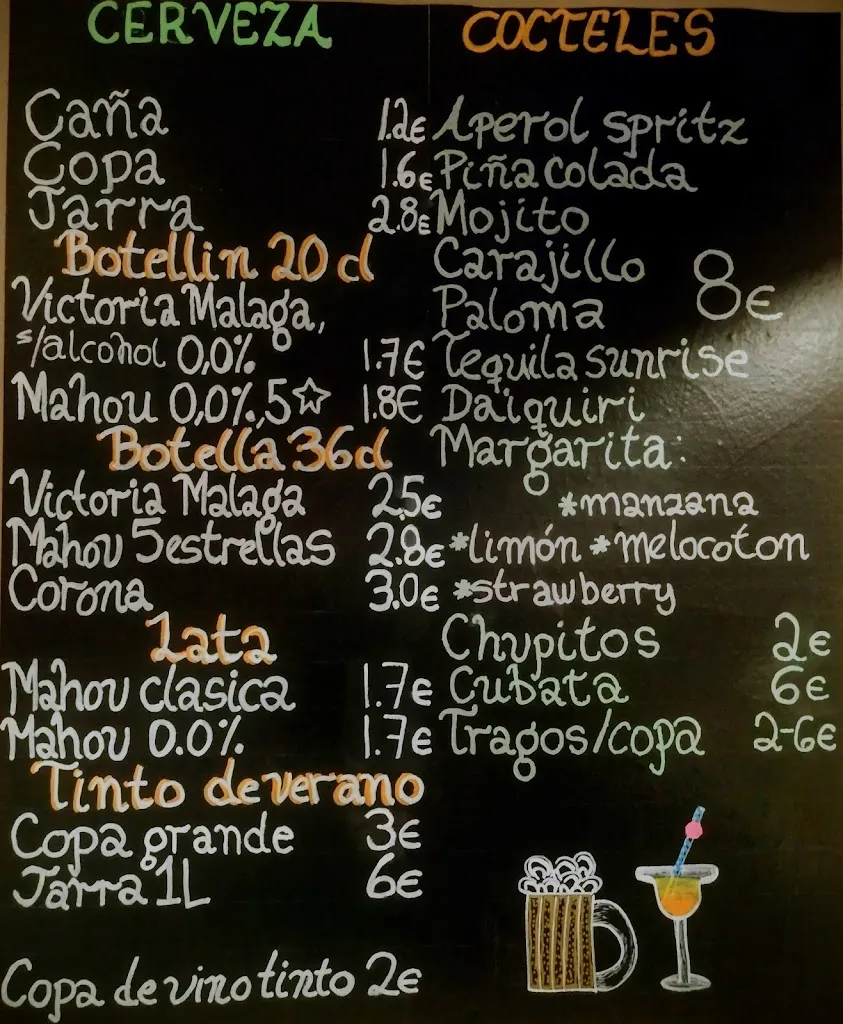 CERVEZA
Caña 1.2€
Copa 1.6€
Jarra 2.8€
Botellin 20 cl
Victoria Malaga,
s/alcohol 0,0% 1.7€
Mahou 0,0%,5☆ 1.8€
Botella 36cl
Victoria Malaga 2.5€
Mahou 5estrellas 2.8€
Corona 3.0€
Lata
Mahou clasica 1.7€
Mahou 0.0% 1.7€
Tinto de verano
Copa grande 3€
Jarra 1L 6€
Copa de vino tinto 2€
COCTELES
Aperol spritz
Piña colada
Mojito
Carajillo
8€
Paloma
Tequila sunrise
Daiquiri
Margarita:
*manzana
*limón *melocoton
*strawberry
Chupitos 2€
Cubata 6€
Tragos/copa 2-6€